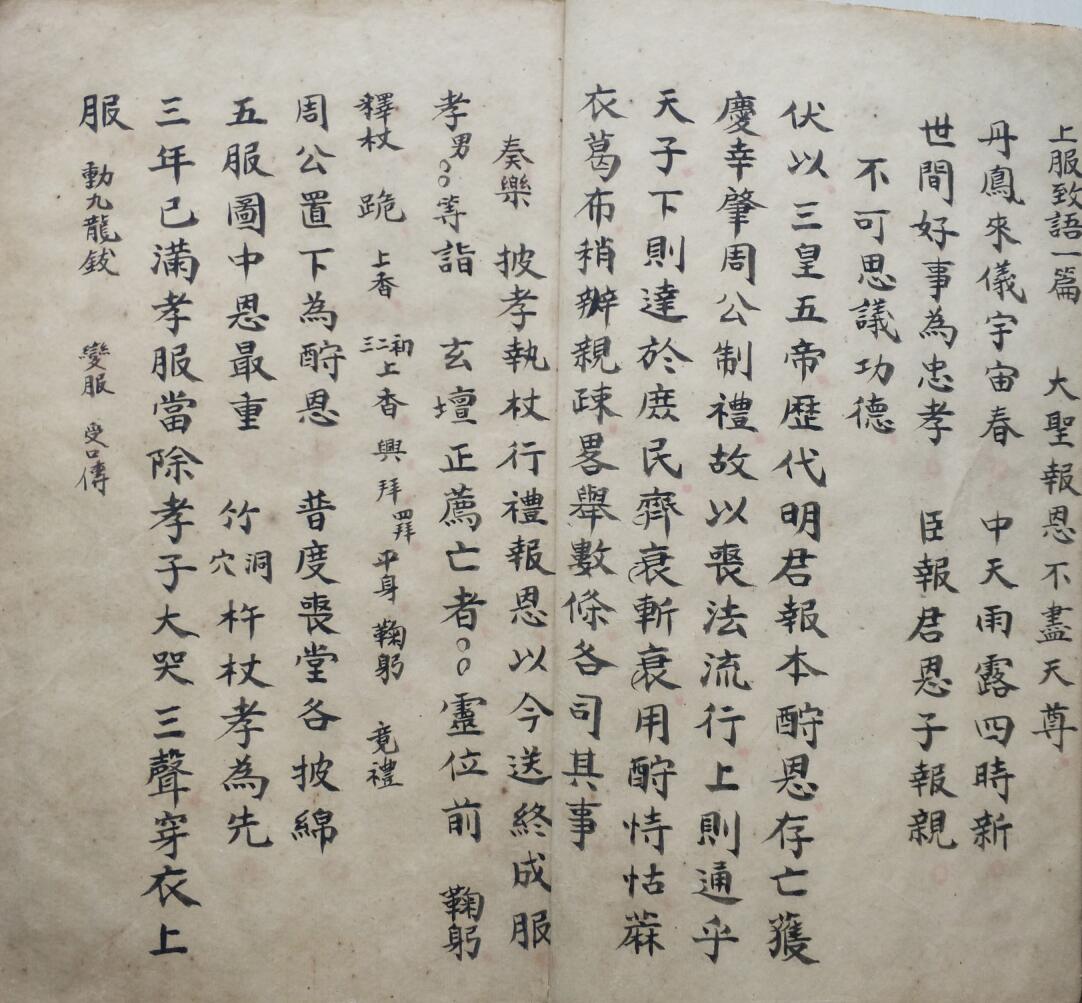 上服致語一篇 大聖報恩不盡天尊
丹鳳來儀宇宙春 中天雨露四時新
世間好事為忠孝 臣報君恩子報親
不可思議功德
伏以三皇五帝歷代明君報本酧恩存亡獲
慶幸肇周公制禮故以喪法流行上則通乎
天子下則達於庶民齊衰斬衰用酧恃怙蔴
衣葛布稍辦親疎畧舉數條各司其事
奏樂 披孝執杖行禮報恩以今送終成服
孝男○○等詣 玄壇正薦亡者○○靈位前 鞠躬
釋杖 跪 上香 初二三上香 興 拜 四拜 平身 鞠躬 竟禮
周公置下為酧恩 普度喪堂各披綿
五服圖中恩最重 竹洞穴杵杖孝為先
三年已滿孝服當除孝子大哭三聲穿衣上
服 動九龍鈸 變服 受口傳